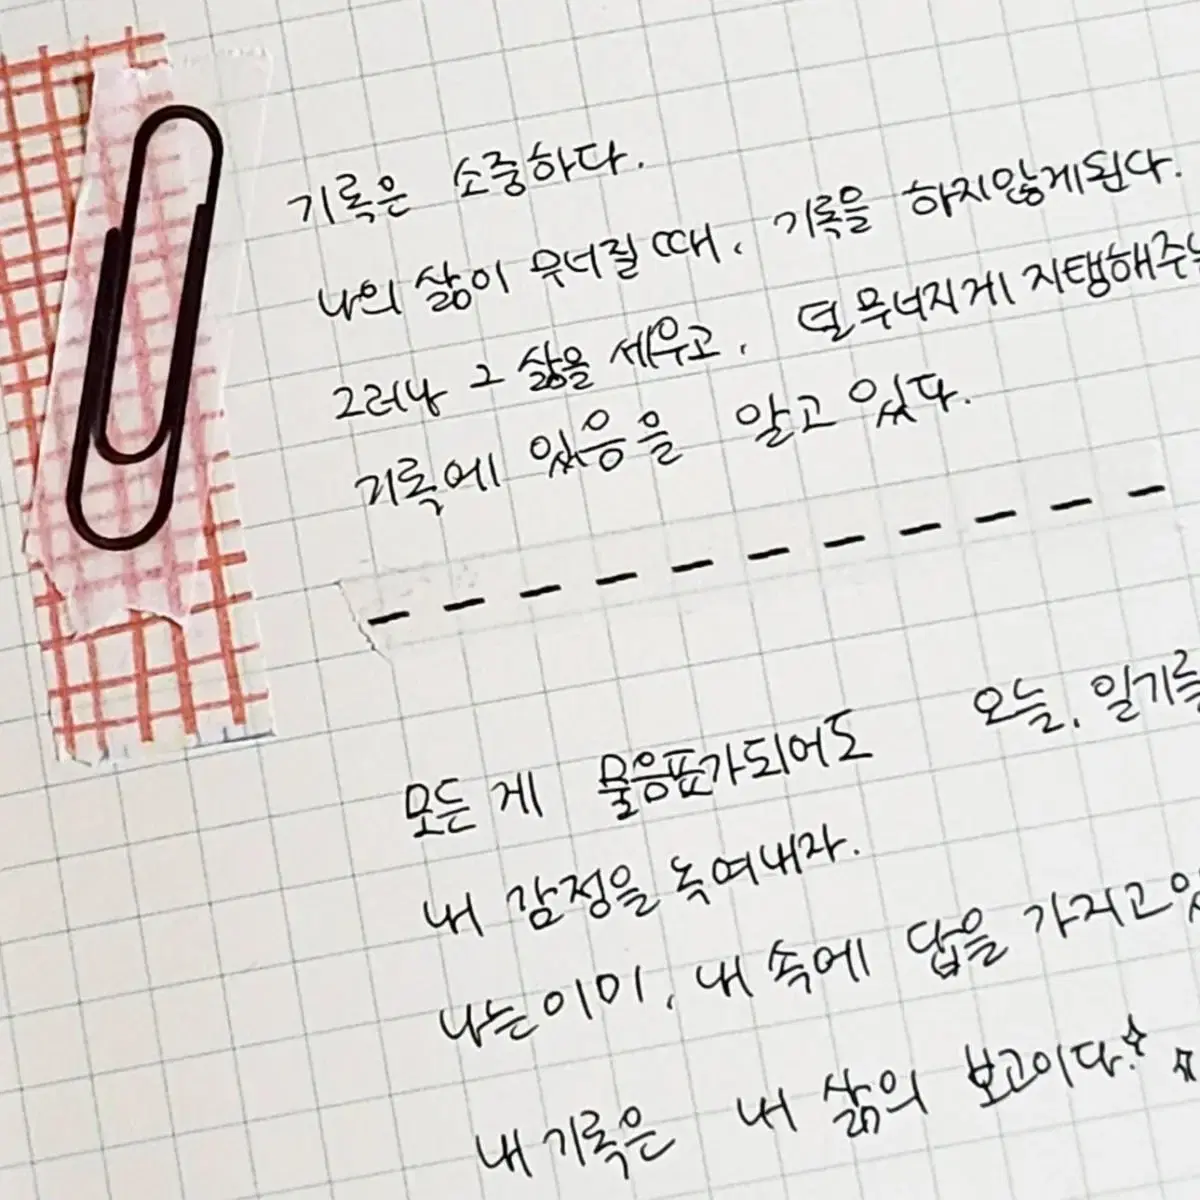 기록은 소중하다.
나의 삶이 무너질 때, 기록을 하지않게된다.
그러나 그 삶을 세우고, 덜 무너지게 지탱해주는
기록에 있음을 알고 있다.
모든 게 물음표가되어도 오늘, 일기를
내 감정을 녹여내자.
나는 이미, 내 속에 답을 가지고있
내 기록은 내 삶의 보고이다.